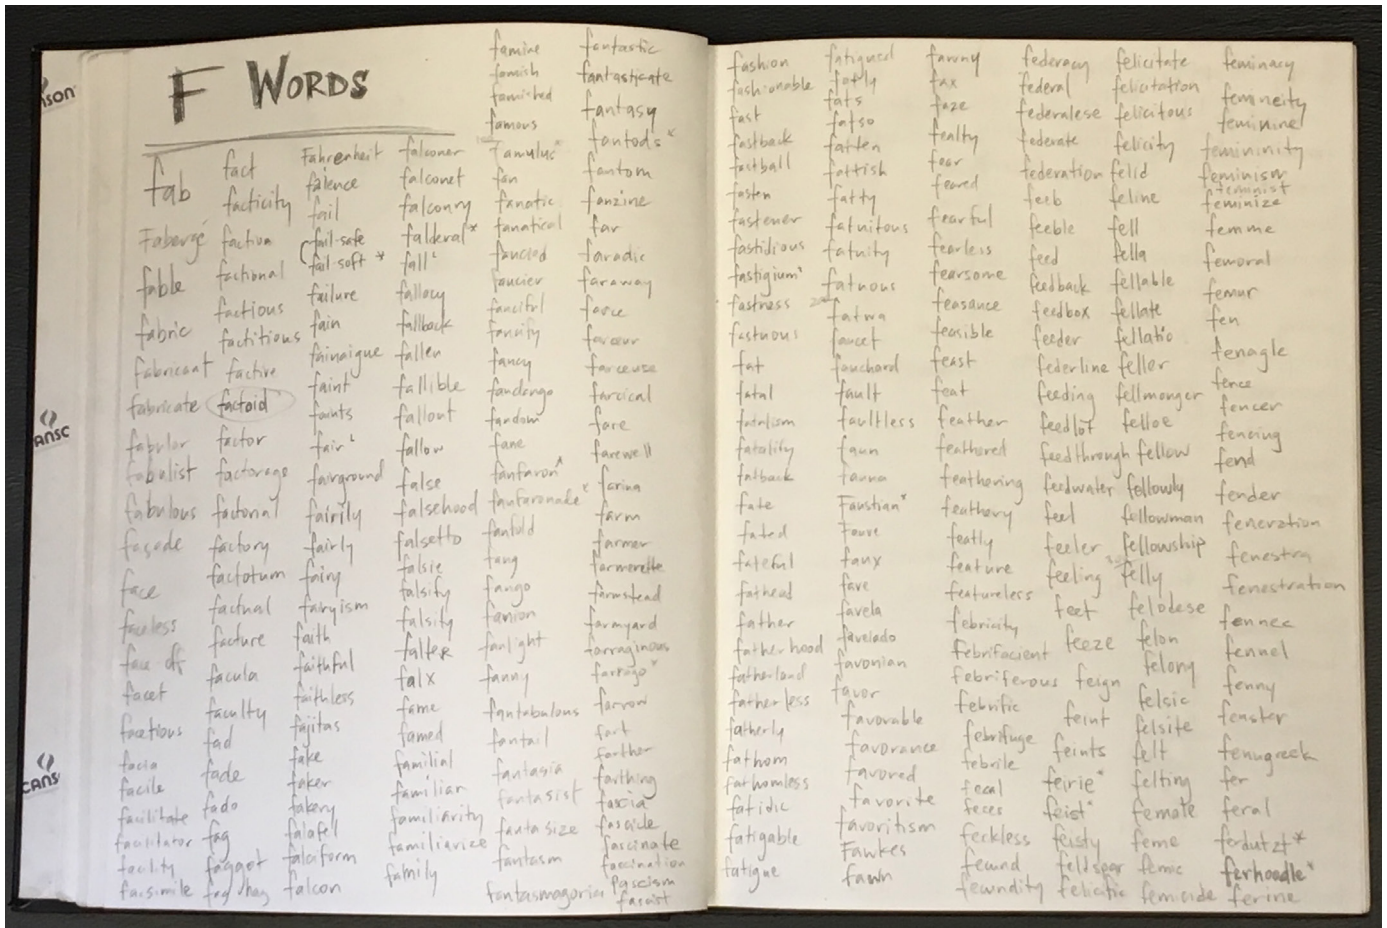 F WORDS
fab
Fabergé
fable
fabric
fabricant
fabricate
fabular
fabulist
fabulous
façade
face
faceless
face off
facet
facetious
facia
facile
facilitate
facilitator
facility
facsimile
fact
facticity
faction
factional
factious
factitious
factive
factoid
factor
factorage
factorial
factory
factotum
factual
facture
facula
faculty
fad
fade
fado
fag
faggot
fag hag
Fahrenheit
faience
fail
fail-safe
fail-soft *
failure
fain
fainaigue
faint
faints
fair
fairground
fairily
fairly
fairy
fairyism
faith
faithful
faithless
fajitas
fake
faker
fakery
falafel
falciform
falcon
falconer
falconet
falconry
falderal *
fall
fallacy
fallback
fallen
fallible
fallout
fallow
false
falsehood
falsetto
falsie
falsify
falsity
falter
falx
fame
famed
familial
familiar
familiarity
familiarize
family
famine
famish
famished
famous
famulus
fan
fanatic
fanatical
fancied
fancier
fanciful
fancify
fancy
fandango
fandom
fane
fanfaron
fanfaronade
fanfold
fang
fango
fanion
fanlight
fanny
fantabulous
fantail
fantasia
fantasist
fantasize
fantasm
fantasmagoria
fantastic
fantasticate
fantasy
fantods *
fantom
fanzine
far
faradic
faraway
farce
farceur
farceuse
farcical
fare
farewell
farina
farm
farmer
farmerette
farmstead
farmyard
farraginous
farrago *
farrow
fart
farther
farthing
fascia
fascicle
fascinate
fascination
fascism
fascist
fashion
fashionable
fast
fastback
fastball
fasten
fastener
fastidious
fastigium
fastness
fastuous
fat
fatal
fatalism
fatality
fatback
fate
fated
fateful
fathead
father
fatherhood
fatherland
fatherless
fatherly
fathom
fathomless
fatidic
fatigable
fatigue
fatigued
fatly
fats
fatso
fatten
fattish
fatty
fatuitous
fatuity
fatuous
fatwa
faucet
fauchard
fault
faultless
faun
fauna
Faustian *
Fauve
faux
fave
favela
favelado
favonian
favor
favorable
favorance
favored
favorite
favoritism
Fawkes
fawn
fawny
fax
faze
fealty
fear
feared
fearful
fearless
fearsome
feasance
feasible
feast
feat
feather
feathered
feathering
feathery
featly
feature
featureless
febricity
febrifacient
febriferous
febrific
febrifuge
febrile
fecal
feces
feckless
fecund
fecundity
federacy
federal
federalese
federate
federation
feeb
feeble
feed
feedback
feedbox
feeder
federline
feeding
feedlot
feedthrough
feedwater
feel
feeler
feeling
feet
feeze
feign
feint
feints
feirie *
feist *
feisty
feldspar
felicific
felicitate
felicitation
felicitous
felicity
felid
feline
fell
fella
fellable
fellate
fellatio
feller
fellmonger
felloe
fellow
fellowly
fellowman
fellowship
felly
felodese
felon
felony
felsic
felsite
felt
felting
female
feme
femic
femicide
feminacy
femineity
feminine
femininity
feminism
feminist
feminize
femme
femoral
femur
fen
fenagle
fence
fencer
fencing
fend
fender
feneration
fenestra
fenestration
fennec
fennel
fenny
fenster
fenugreek
fer
feral
ferdutzt *
ferhoodle *
ferine
CANS